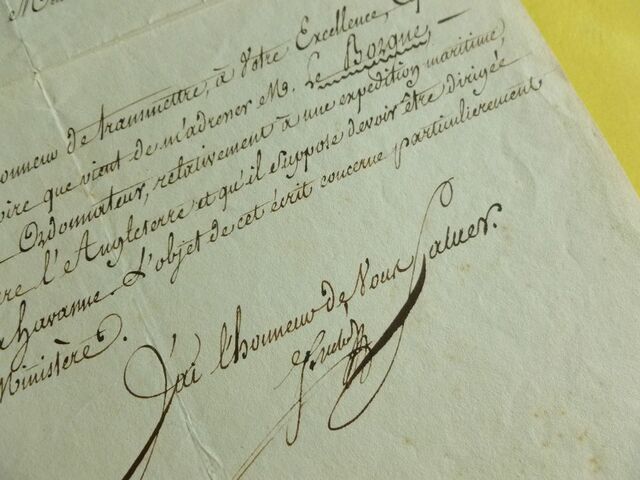 onneur de transmettre, à Votre Excellence,
oire que vient de m'adresser M. Le Borgne,
Ordonnateur, relativement à une expédition maritime,
re l'Angleterre et qu'il suppose devoir être dirigée
Havanne. L'objet de cet écrit concerne particulièrement
Ministère.
J'ai l'honneur de Vous Saluer.